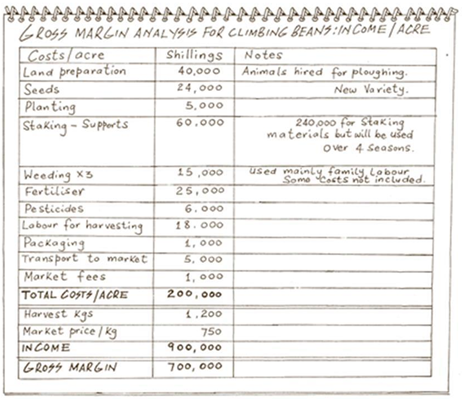 GROSS MARGIN ANALYSIS FOR CLIMBING BEANS: INCOME/ACRE
Costs/acre Shillings Notes
Land preparation 40,000 Animals hired for ploughing.
Seeds 24,000 New Variety.
Planting 5,000
Staking - Supports 60,000 240,000 for Staking
materials but will be used
Over 4 seasons.
Weeding x3 15,000 Used mainly family Labour
Some costs not included.
Fertiliser 25,000
Pesticides 6.000
Labour for harvesting 18.000
Packaging 1,000
Transport to market 5,000
Market fees 1,000
TOTAL COSTS/ACRE 200,000
Harvest Kgs 1,200
Market price/kg 750
INCOME 900,000
GROSS MARGIN 700,000